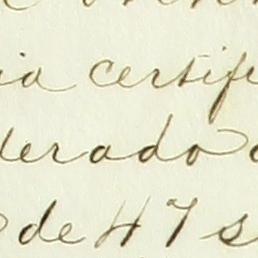 ia certifi
derado
de 47 s